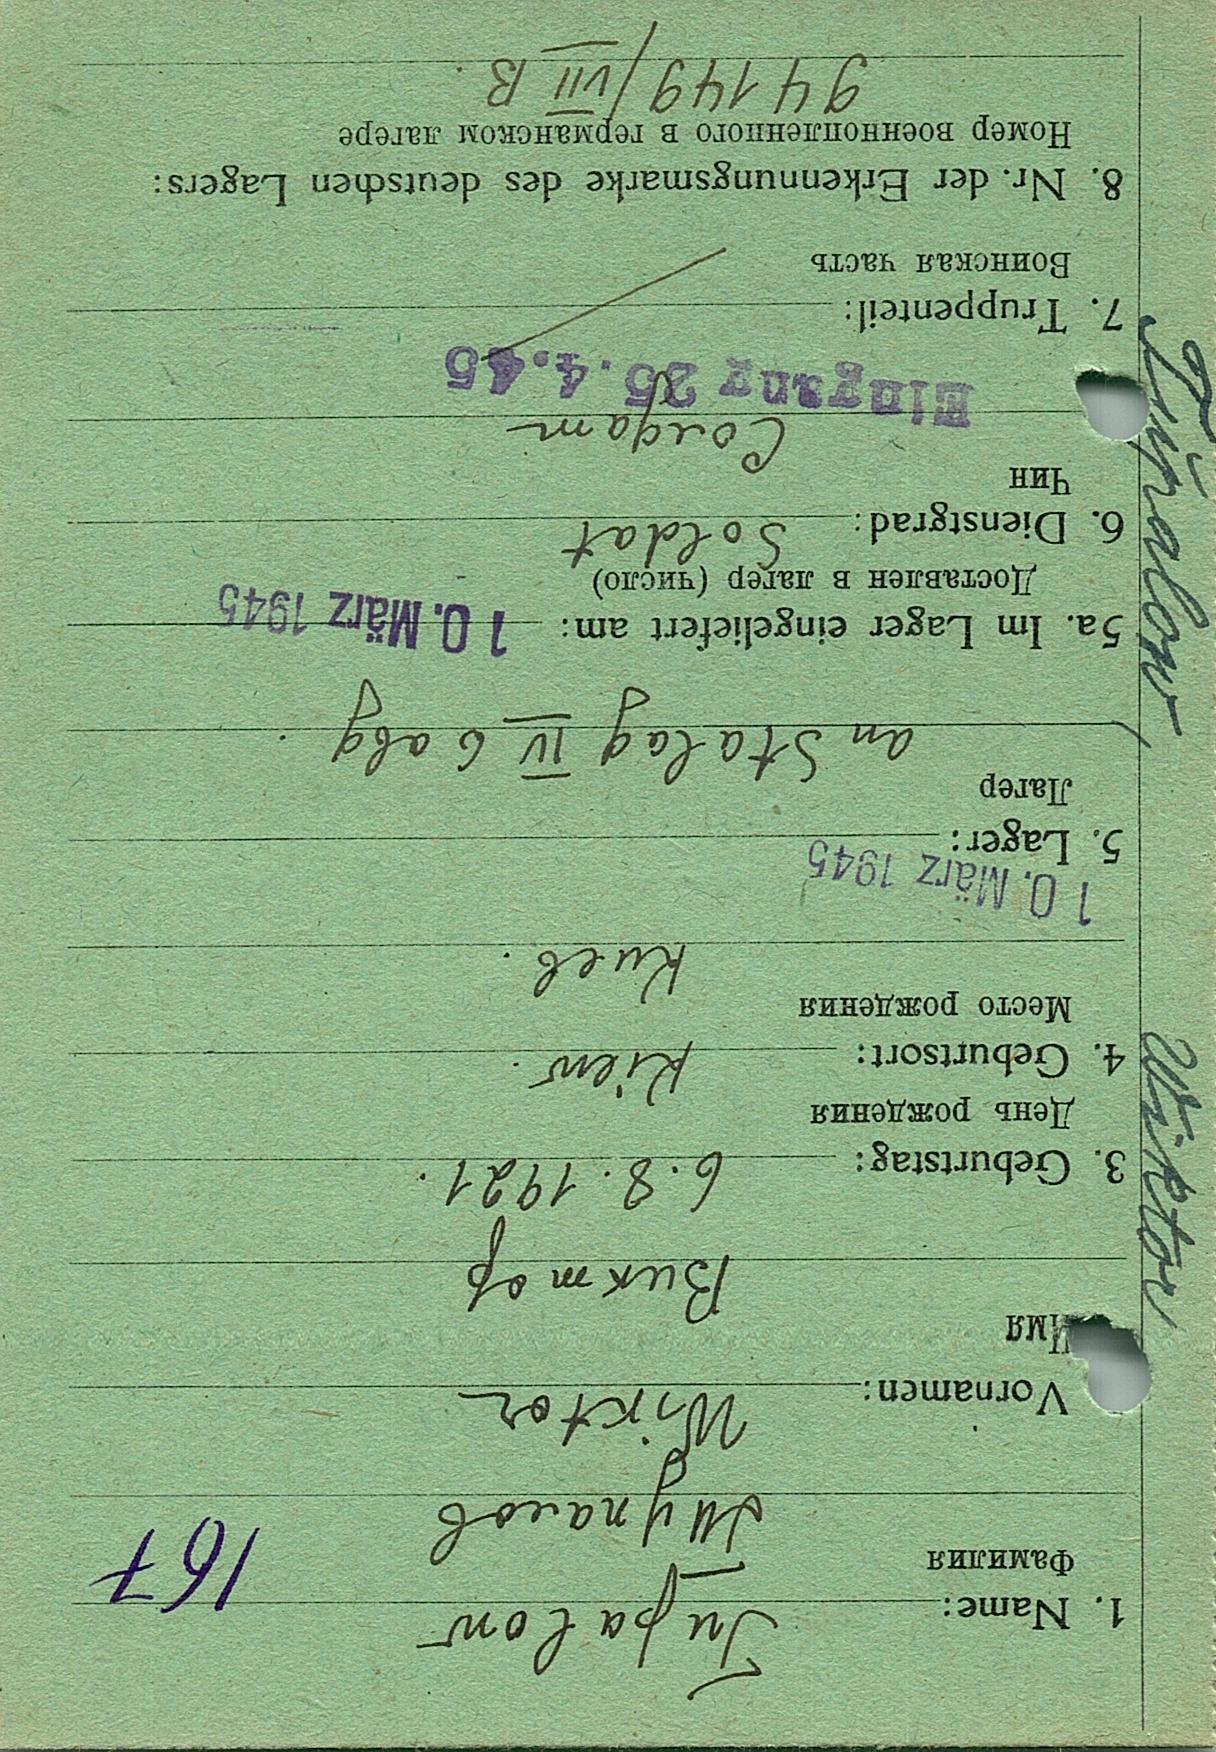 167
1. Name: Tupalow
Фамилия
Тупалов
Vornamen: Wiktor
Имя
Виктор
3. Geburtstag: 6.8.1921.
День рождения
4. Geburtsort: Kiew.
Место рождения
Киев.
10. März 1945
5. Lager:
Лагер
an Stalag IV G abg.
5a. Im Lager eingeliefert am: 10. März 1945
Доставлен в лагер (число)
6. Dienstgrad: Soldat
Чин
Солдат
Eingang 25.4.45
7. Truppenteil:
Воинская часть
8. Nr. der Erkennungsmarke des deutschen Lagers:
Номер военнопленного в германском лагере
94149/VII B.
Wiktor